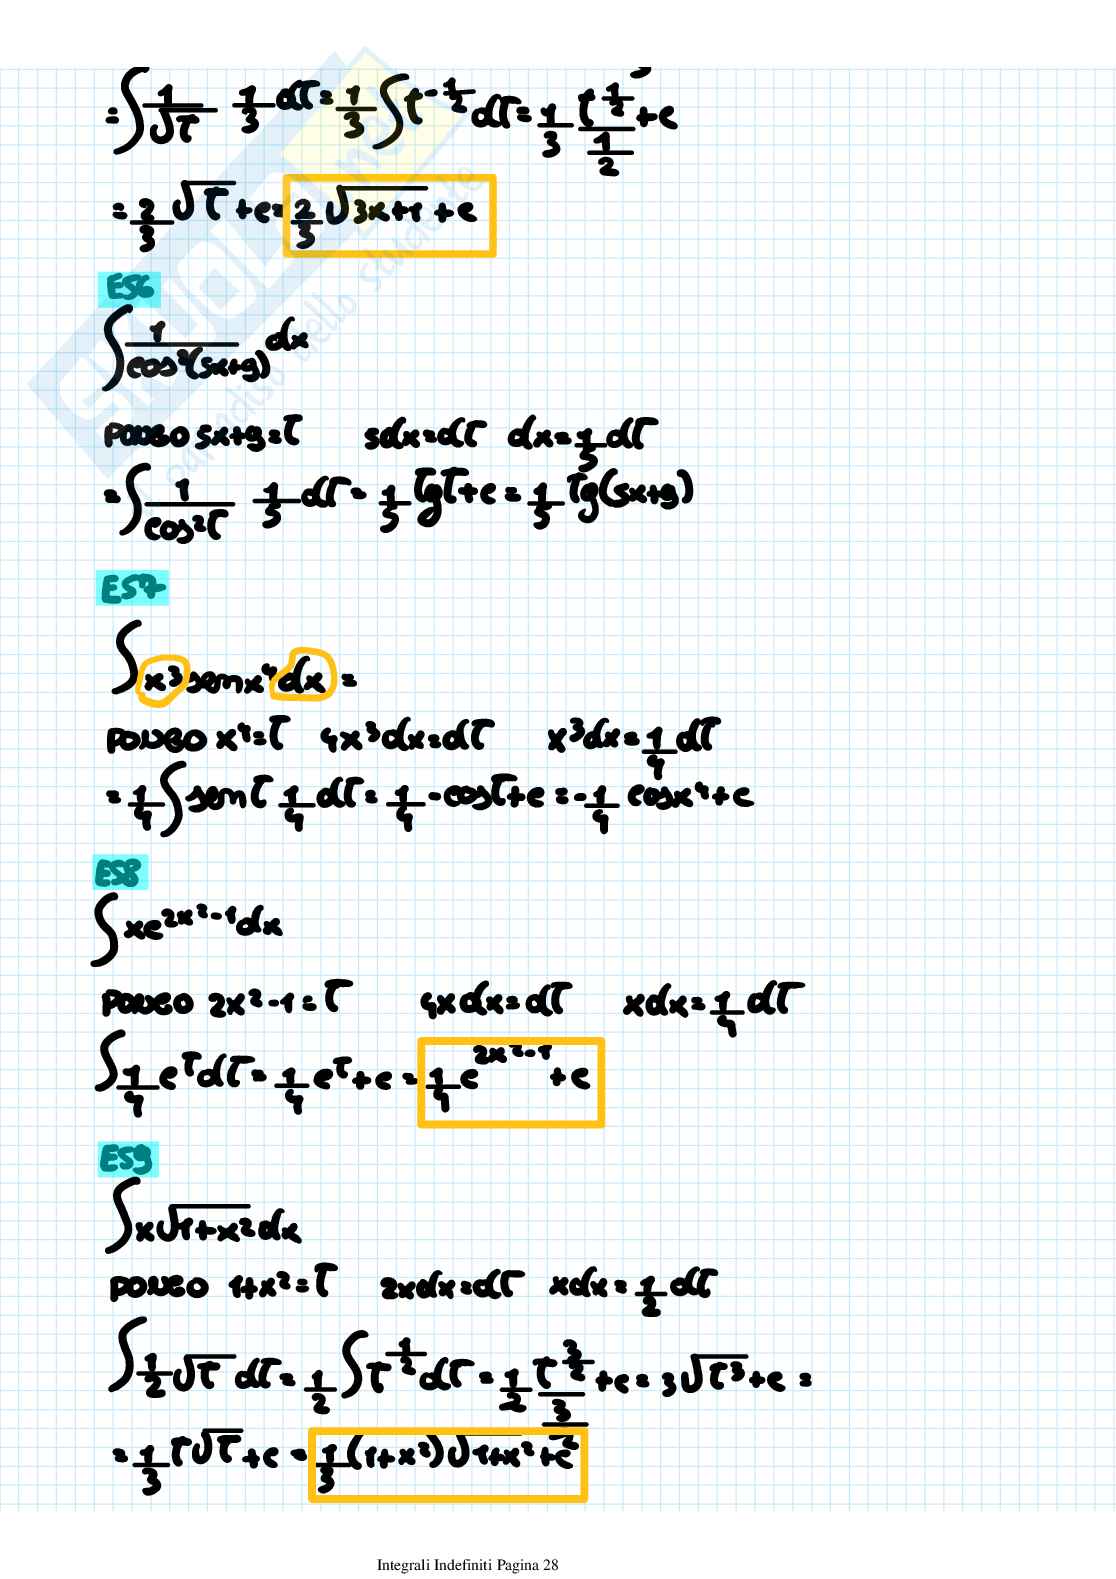 = ∫ 1/√t 1/3 dt = 1/3 ∫ t^(-1/2) dt = 1/3 t^(1/2)/(1/2) + c
= 2/3 √t + c = 2/3 √(3x+1) + c
ES6
∫ 1/cos²(5x+9) dx
PONGO 5x+9=t 5dx=dt dx=1/5 dt
= ∫ 1/cos²t 1/5 dt = 1/5 tgt+c = 1/5 tg(5x+9)
ES7
∫ x³ sen x⁴ dx =
PONGO x⁴=t 4x³dx=dt x³dx=1/4 dt
= 1/4 ∫ sen t 1/4 dt = 1/4 -cost+c = -1/4 cosx⁴+c
ES8
∫ xe^(2x²-1) dx
PONGO 2x²-1=t 4xdx=dt xdx=1/4 dt
∫ 1/4 e^t dt = 1/4 e^t + c = 1/4 e^(2x²-1) + c
ES9
∫ x√(1+x²) dx
PONGO 1+x²=t 2xdx=dt xdx=1/2 dt
∫ 1/2 √t dt = 1/2 ∫ t^(1/2) dt = 1/2 t^(3/2)/(3/2) + c = 3√(t³) + c =
= 1/3 t√t + c = 1/3 (1+x²)√(1+x²) + c
Integrali Indefiniti Pagina 28